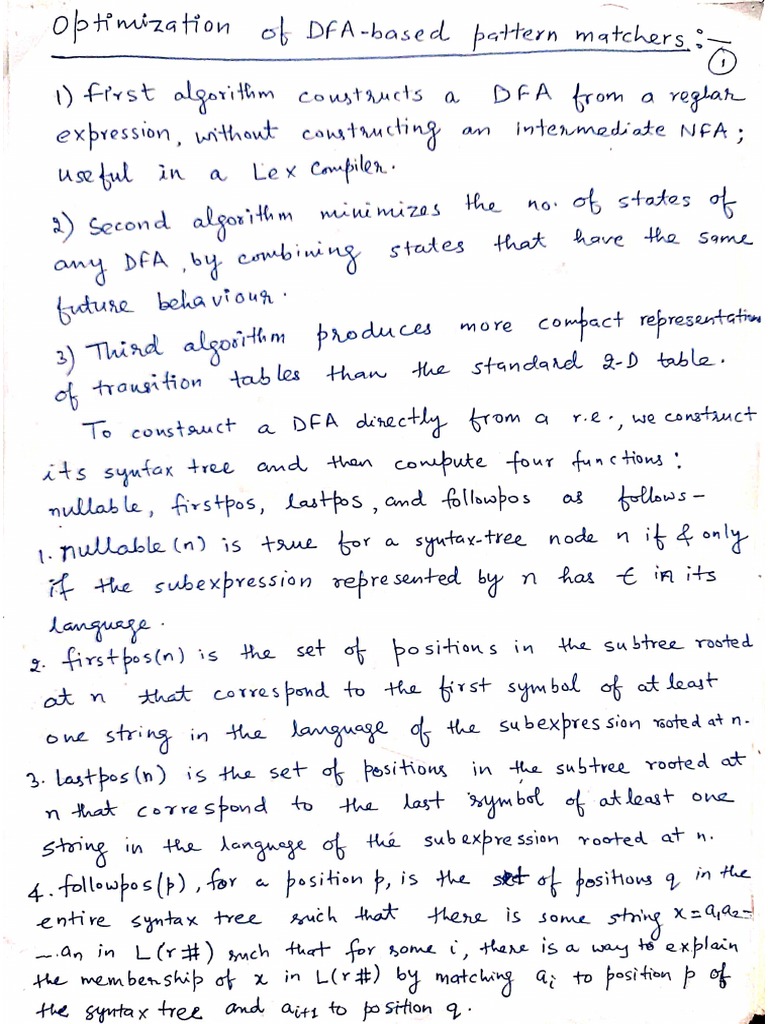 Optimization of DFA-based pattern matchers :-
1
1) First algorithm constructs a DFA from a reglar
expression, without constructing an intermediate NFA ;
useful in a Lex Compiler.
2) Second algorithm minimizes the no. of states of
any DFA, by combining states that have the same
future behaviour.
3) Third algorithm produces more compact representation
of transition tables than the standard 2-D table.
To construct a DFA directly from a r.e., we construct
its syntax tree and then compute four functions :
nullable, firstpos, lastpos, and followpos as follows -
1. nullable (n) is true for a syntax-tree node n if & only
if the subexpression represented by n has ϵ in its
language.
2. firstpos(n) is the set of positions in the subtree rooted
at n that correspond to the first symbol of at least
one string in the language of the subexpression rooted at n.
3. Lastpos(n) is the set of positions in the subtree rooted at
n that correspond to the last symbol of at least one
string in the language of the subexpression rooted at n.
4. followpos(p), for a position p, is the set of positions q in the
entire syntax tree such that there is some string x=a₁a₂-
-.an in L(r#) such that for some i, there is a way to explain
the membership of x in L(r#) by matching ai to position p of
the syntax tree and ai+1 to position q.